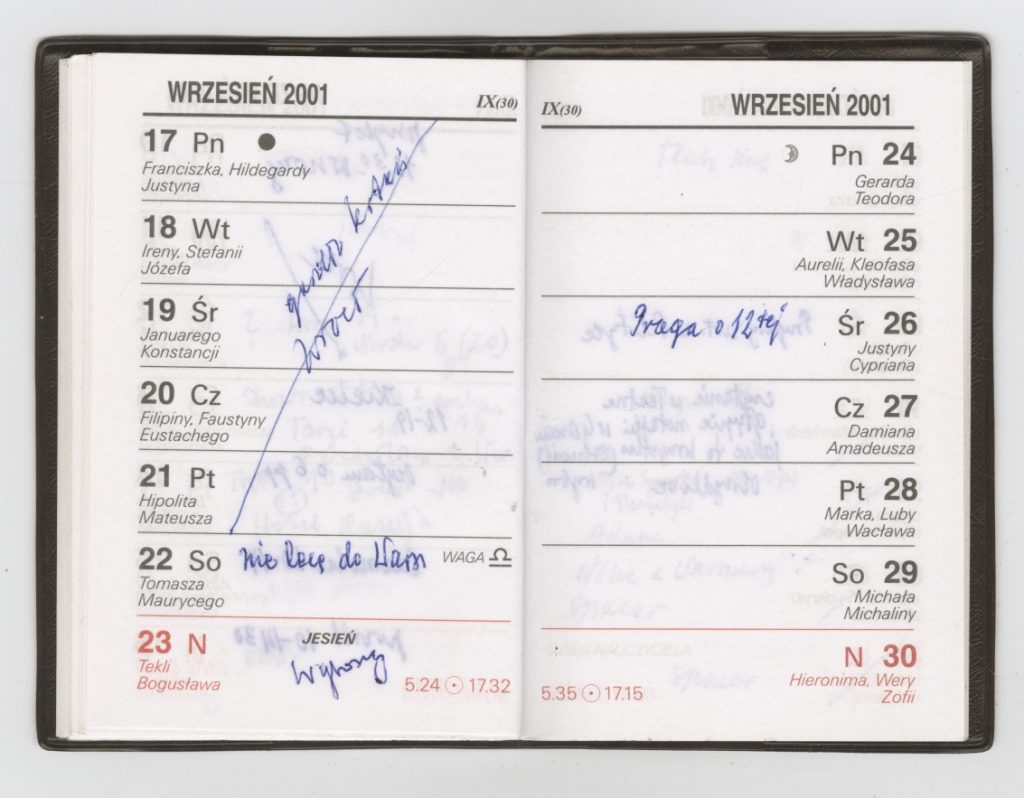 WRZESIEŃ 2001
IX(30)
17 Pn
Franciszka, Hildegardy
Justyna
18 Wt
Ireny, Stefanii
Józefa
19 Śr
Januarego
Konstancji
20 Cz
Filipiny, Faustyny
Eustachego
21 Pt
Hipolita
Mateusza
22 So
nie lecę do Warn
WAGA ♎
Tomasza
Maurycego
23 N
JESIEŃ
Tekli
Bogusława
Wybory
5.24 ☉ 17.32
IX(30)
WRZESIEŃ 2001
Pn 24
Gerarda
Teodora
Wt 25
Aurelii, Kleofasa
Władysława
Praga o 12tej
Śr 26
Justyny
Cypriana
Cz 27
Damiana
Amadeusza
Pt 28
Marka, Luby
Wacława
So 29
Michała
Michaliny
N 30
Hieronima, Wery
Zofii
5.35 ☉ 17.15